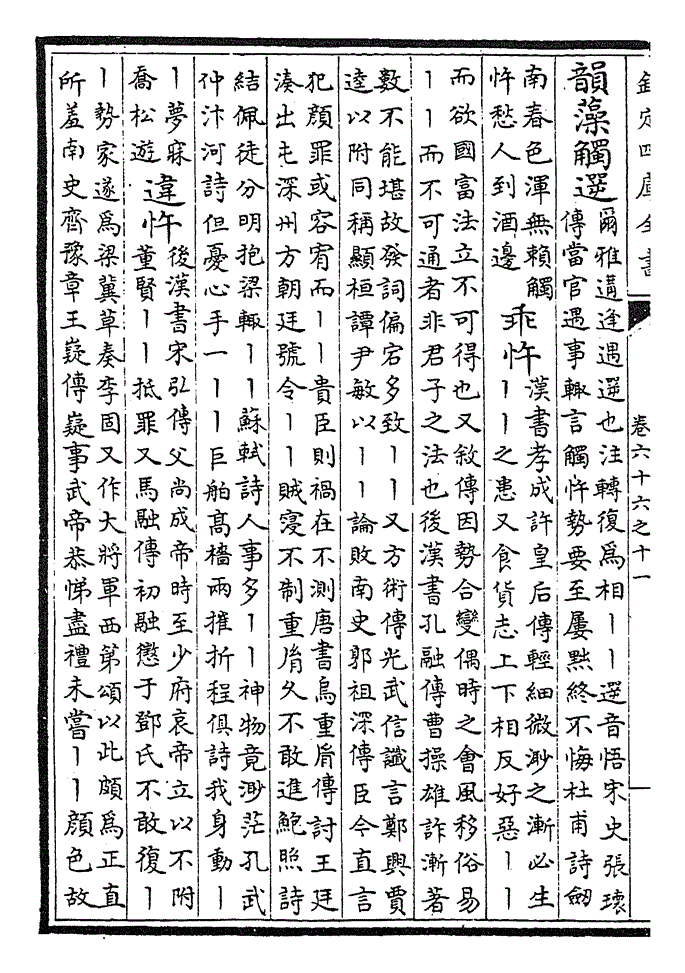 欽定四庫全書
卷六十六之十一
韻藻觸遻
爾雅遘逢遇遻也注轉復為相丨丨遻音悟宋史張瓌
傳當官遇事輒言觸忤勢要至屢黜終不悔杜甫詩劔
南春色渾無賴觸
忤愁人到酒邊
乖忤
漢書孝成許皇后傳輕細微渺之漸必生
丨丨之患又食貨志上下相反好惡丨丨
而欲國富法立不可得也又敘傳因勢合變偶時之會風移俗易
丨丨而不可通者非君子之法也後漢書孔融傳曹操雄詐漸著
數不能堪故發詞偏宕多致丨丨又方術傳光武信讖言鄭興賈
逵以附同稱顯桓譚尹敏以丨丨論敗南史郭祖深傳臣今直言
犯顏罪或容宥而丨丨貴臣則禍在不測唐書烏重胤傳討王廷
湊出屯深州方朝廷號令丨丨賊寖不制重胤久不敢進鮑照詩
結佩徒分明抱梁輒丨丨蘇軾詩人事多丨丨神物竟渺茫孔武
仲汴河詩但憂心手一丨丨巨舶高檣兩摧折程俱詩我身動丨
丨夢寐
喬松遊
違忤
後漢書宋弘傳父尚成帝時至少府哀帝立以不附
董賢丨丨抵罪又馬融傳初融懲于鄧氏不敢復丨
丨勢家遂為梁冀草奏李固又作大將軍西第頌以此頗為正直
所羞南史齊豫章王嶷傳嶷事武帝恭悌盡禮未嘗丨丨顏色故